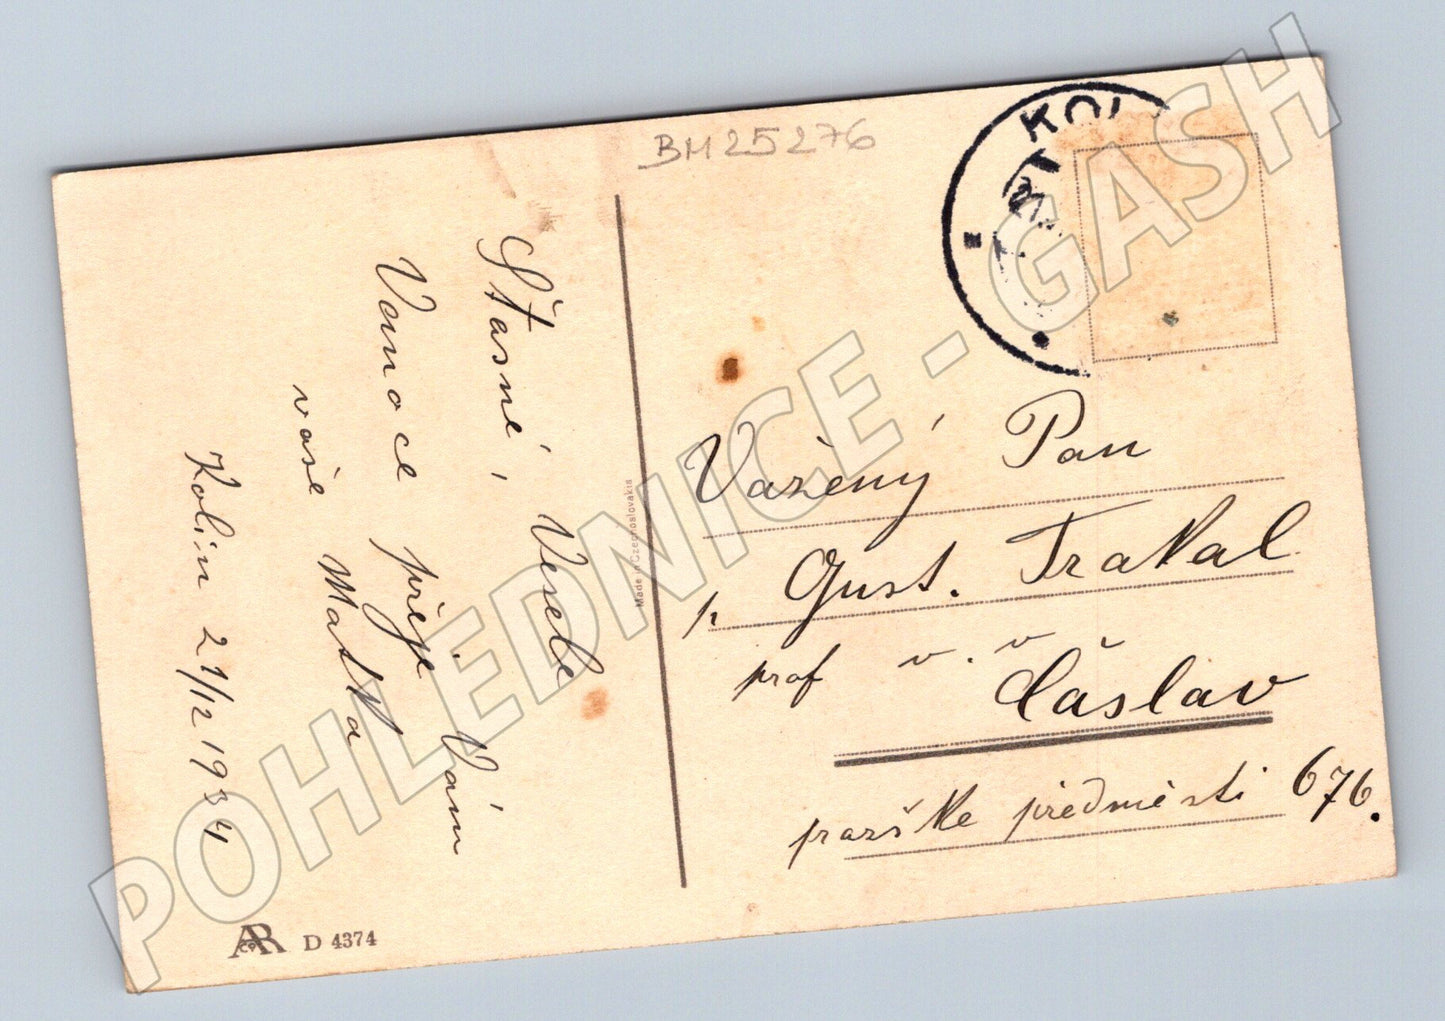 BM25276
KOL
Šťasné, Veselé
Vánoce přeje Vám
vaše Matka
Kolin 21/12 1934
Made in Czechoslovakia
Vážený Pan
p. Gust. Trakal
prof v. v
Čáslav
pražské předměstí 676.
AR
D 4374
POHLEDNICE - GASH